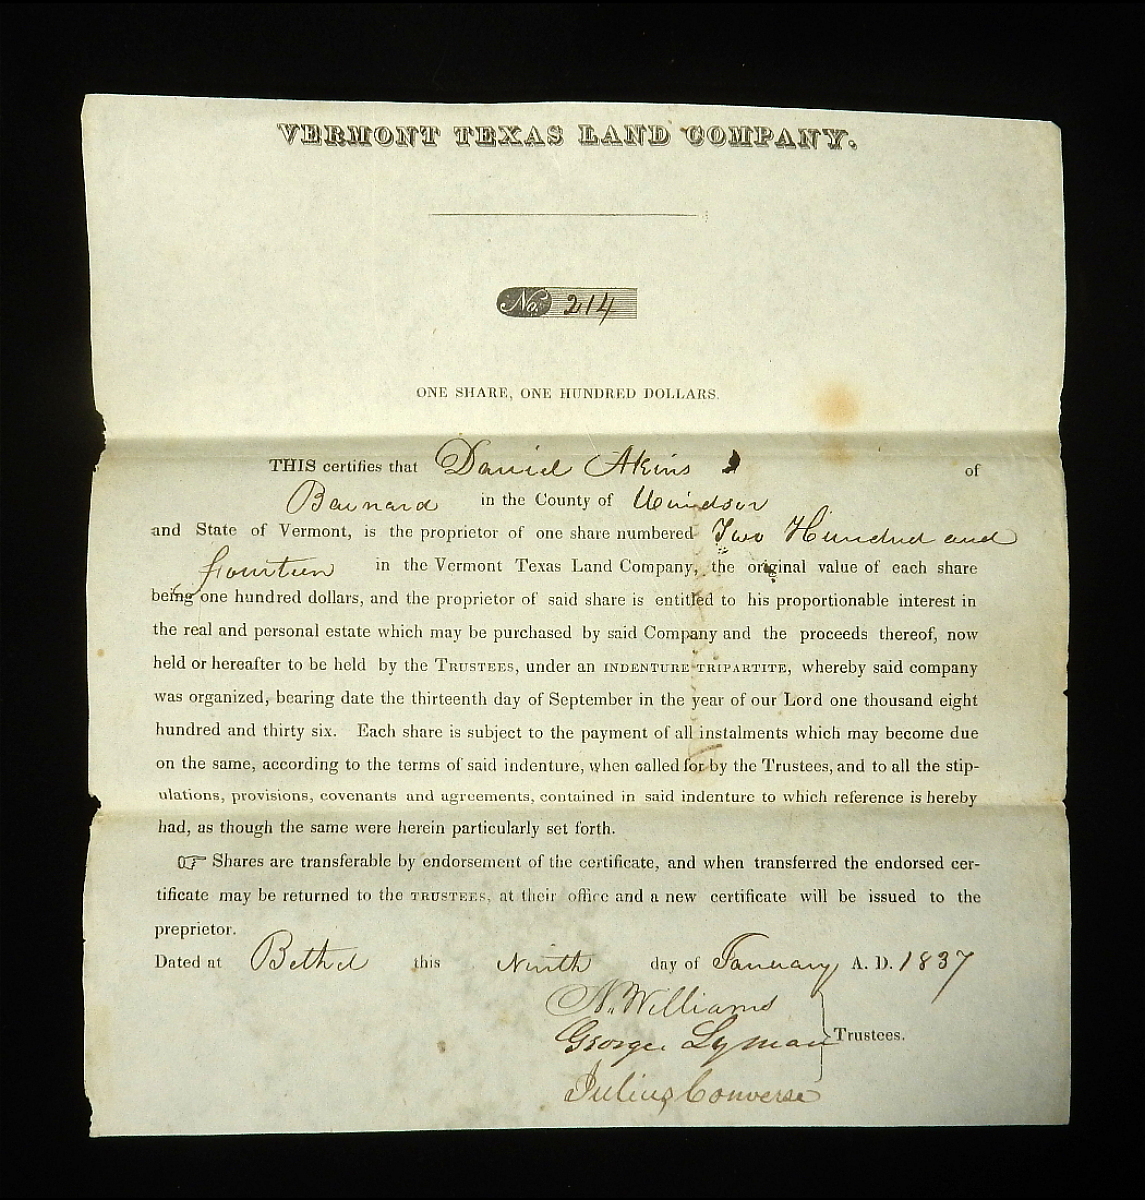 VERMONT TEXAS LAND COMPANY.
No. 214
ONE SHARE, ONE HUNDRED DOLLARS.
THIS certifies that Daniel Akins of
Barnard in the County of Windsor
and State of Vermont, is the proprietor of one share numbered Two Hundred and
fourteen in the Vermont Texas Land Company, the original value of each share
being one hundred dollars, and the proprietor of said share is entitled to his proportionable interest in
the real and personal estate which may be purchased by said Company and the proceeds thereof, now
held or hereafter to be held by the TRUSTEES, under an INDENTURE TRIPARTITE, whereby said company
was organized, bearing date the thirteenth day of September in the year of our Lord one thousand eight
hundred and thirty six. Each share is subject to the payment of all instalments which may become due
on the same, according to the terms of said indenture, when called for by the Trustees, and to all the stip-
ulations, provisions, covenants and agreements, contained in said indenture to which reference is hereby
had, as though the same were herein particularly set forth.
☞ Shares are transferable by endorsement of the certificate, and when transferred the endorsed cer-
tificate may be returned to the TRUSTEES, at their office and a new certificate will be issued to the
preprietor.
Dated at Bethel this Ninth day of January A. D. 1837
N. Williams
George Lyman Trustees.
Julius Converse